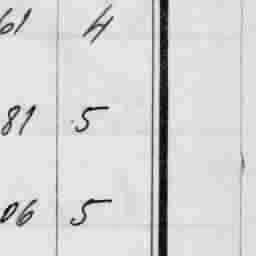 61 4
81 5
06 5